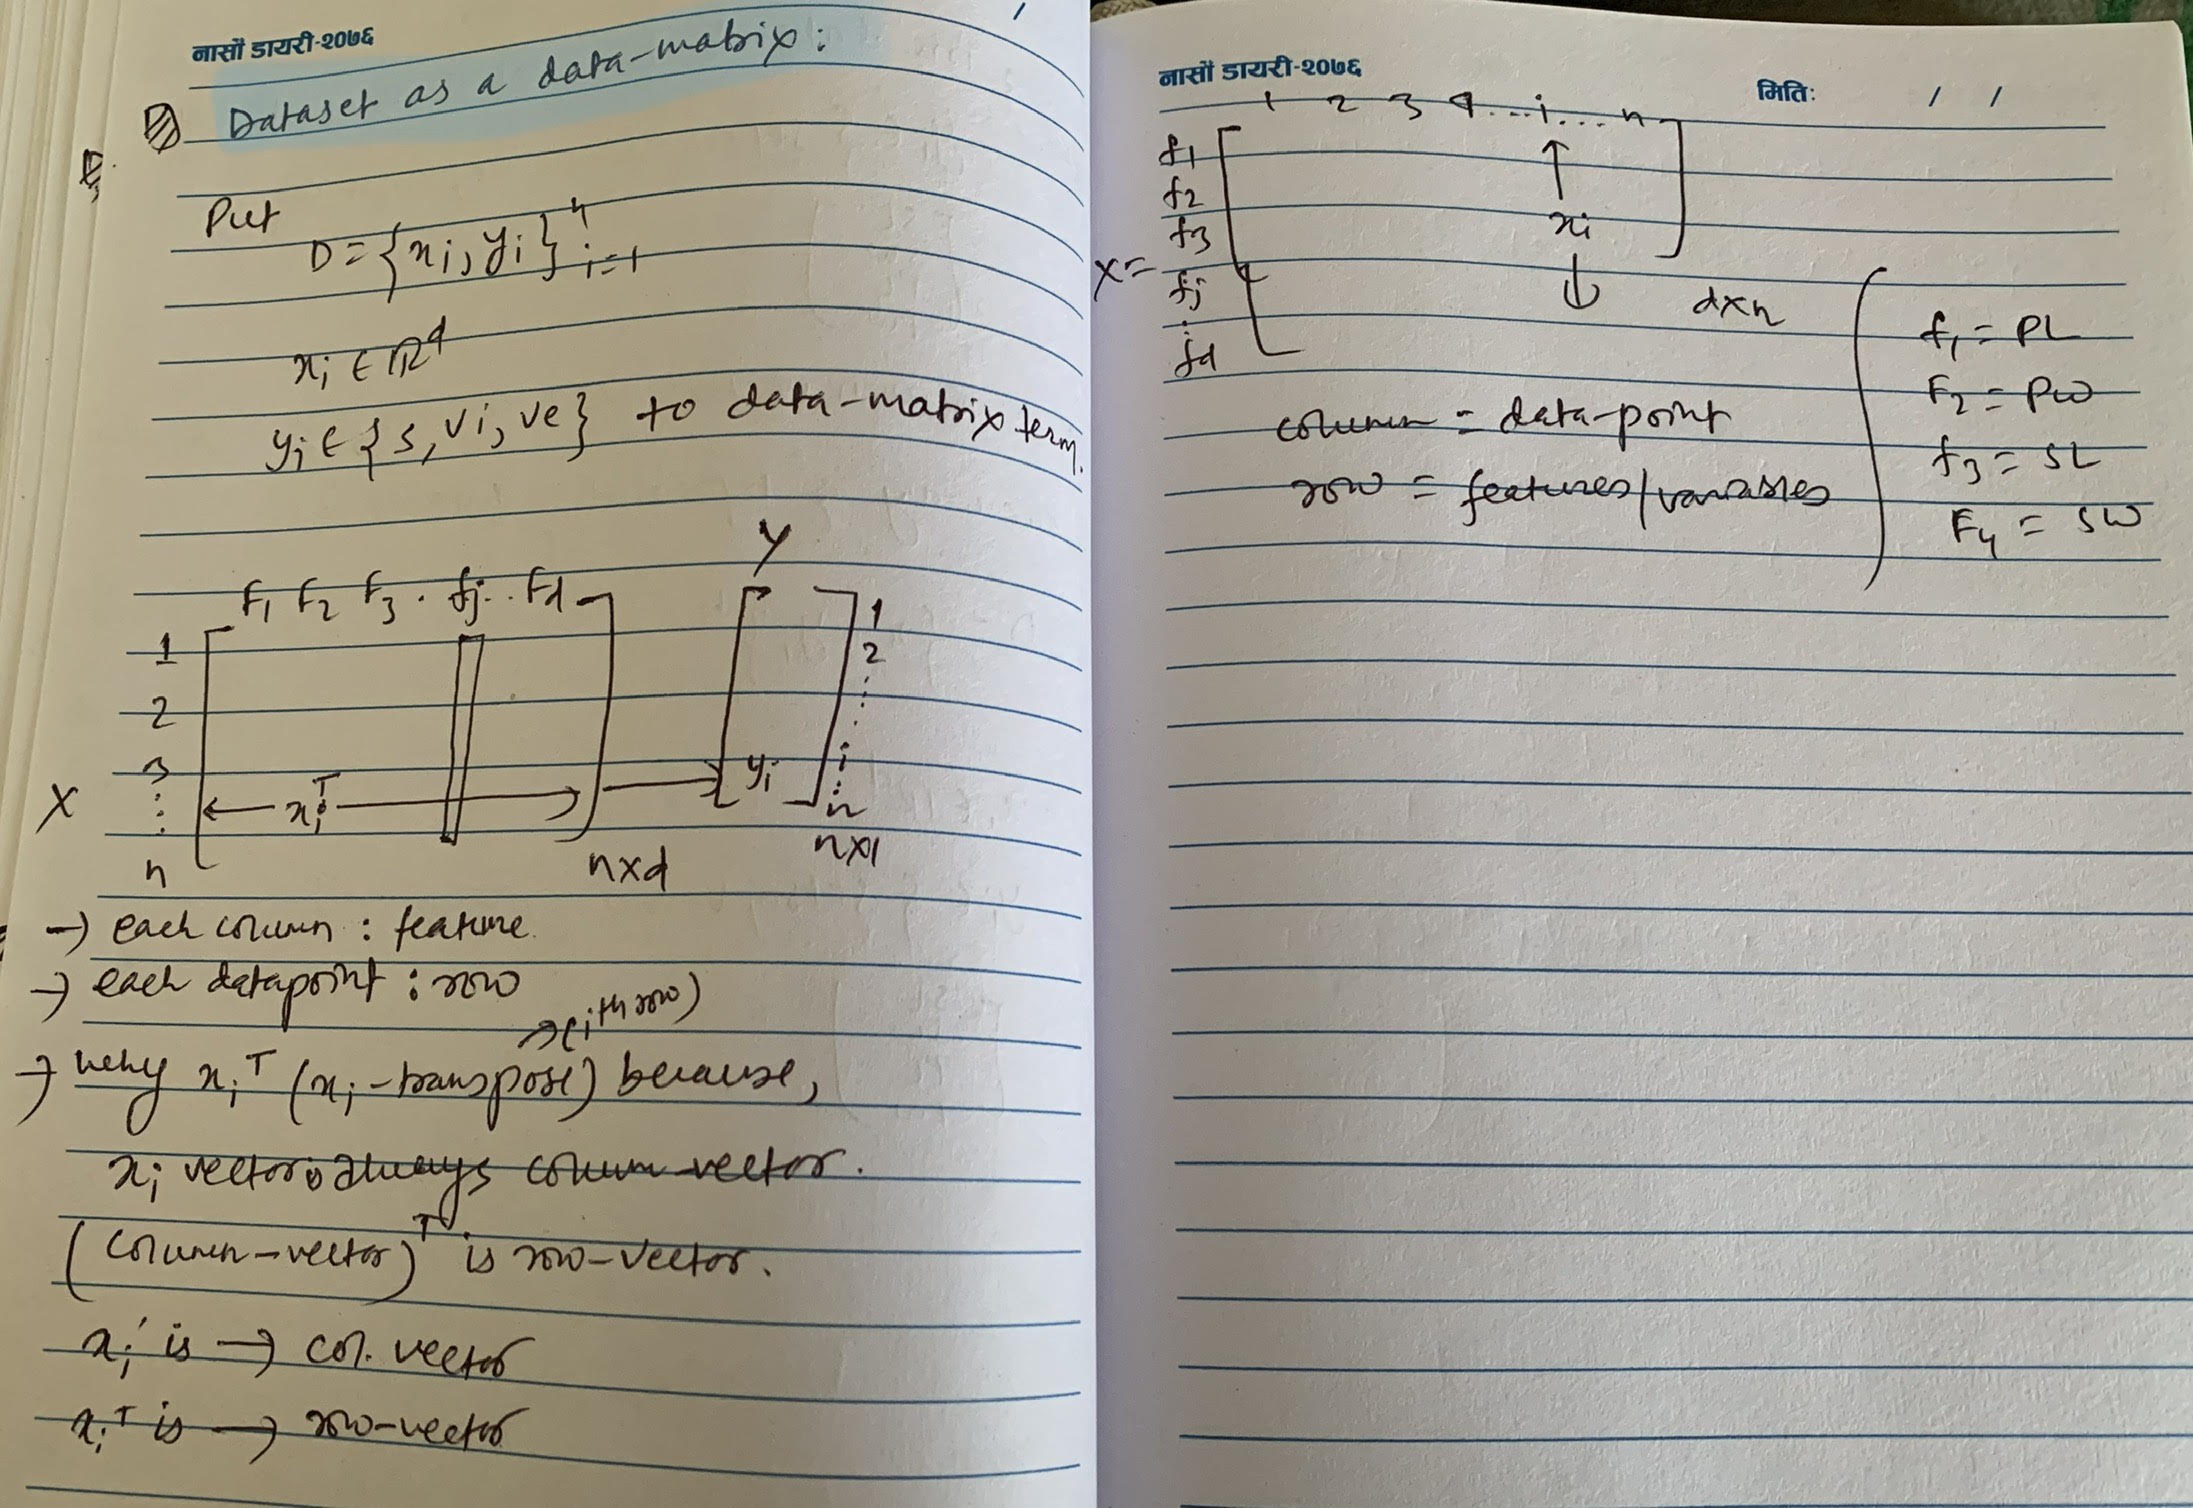 नासौं डायरी-२०७६
Dataset as a data-matrix:
Put
D = {xi, yi}ⁿ i=1
xi ∈ ℝᵈ
yi ∈ {s, vi, ve} to data-matrix term.
Y
F1 F2 F3 . fj .. Fd
1
2
3
⋮
n
X
← xiᵀ →
yi
1
2
⋮
i
⋮
n
nxd
nx1
→ each column : feature
→ each datapoint : row
→ (iᵗʰ row)
→ why xiᵀ (xi - transpose) because,
xi vector: always column-vector.
(column-vector)ᵀ is row-vector.
xi is → col. vector
xiᵀ is → row-vector
नासौं डायरी-२०७६
मितिः / /
1 2 3 4 ... i ... n
f1
f2
f3
fj
⋮
fd
X =
↑
xi
↓
dxn
column = data-point
row = features/variables
f1 = PL
F2 = PW
f3 = SL
F4 = SW